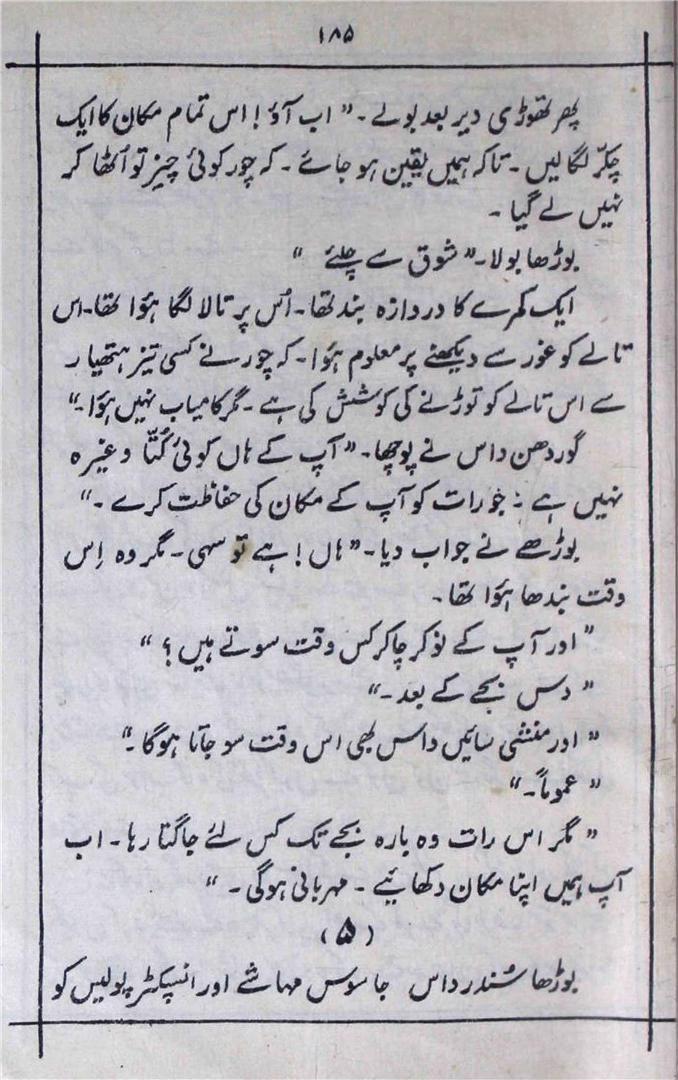 ۱۸۵
پھر تھوڑی دیر بعد بولے۔ "اب آؤ! اس تمام مکان کا ایک
چکّر لگا لیں۔ تاکہ ہمیں یقین ہو جائے۔ کہ چور کوئی چیز تو اُٹھا کر
نہیں لے گیا۔
بوڑھا بولا۔ "شوق سے چلئے"
ایک کمرے کا دروازہ بند تھا۔ اُس پر تالا لگا ہؤا تھا۔ اس
تالے کو غور سے دیکھنے پر معلوم ہوا۔ کہ چور نے کسی تیز ہتھیار
سے اس تالے کو توڑنے کی کوشش کی ہے۔ مگر کامیاب نہیں ہؤا۔"
گوردھن داس نے پوچھا۔ "آپ کے ہاں کوئی کُتّا وغیرہ
نہیں ہے: جو رات کو آپ کے مکان کی حفاظت کرے۔"
بوڑھے نے جواب دیا۔ "ہاں! ہے تو سہی۔ مگر وہ اِس
وقت بندھا ہؤا تھا۔
"اور آپ کے نوکر چاکر کس وقت سوتے ہیں؟"
"دس بجے کے بعد۔"
"اور منشی سائیں داس بھی اس وقت سو جاتا ہوگا۔"
"عموماً۔"
"مگر اس رات وہ بارہ بجے تک کس لئے جاگتا رہا۔ اب
آپ ہمیں اپنا مکان دکھائیے۔ مہربانی ہوگی۔"
(۵)
بوڑھا سُندر داس جاسوس مہاشے اور انسپکٹر پولیس کو